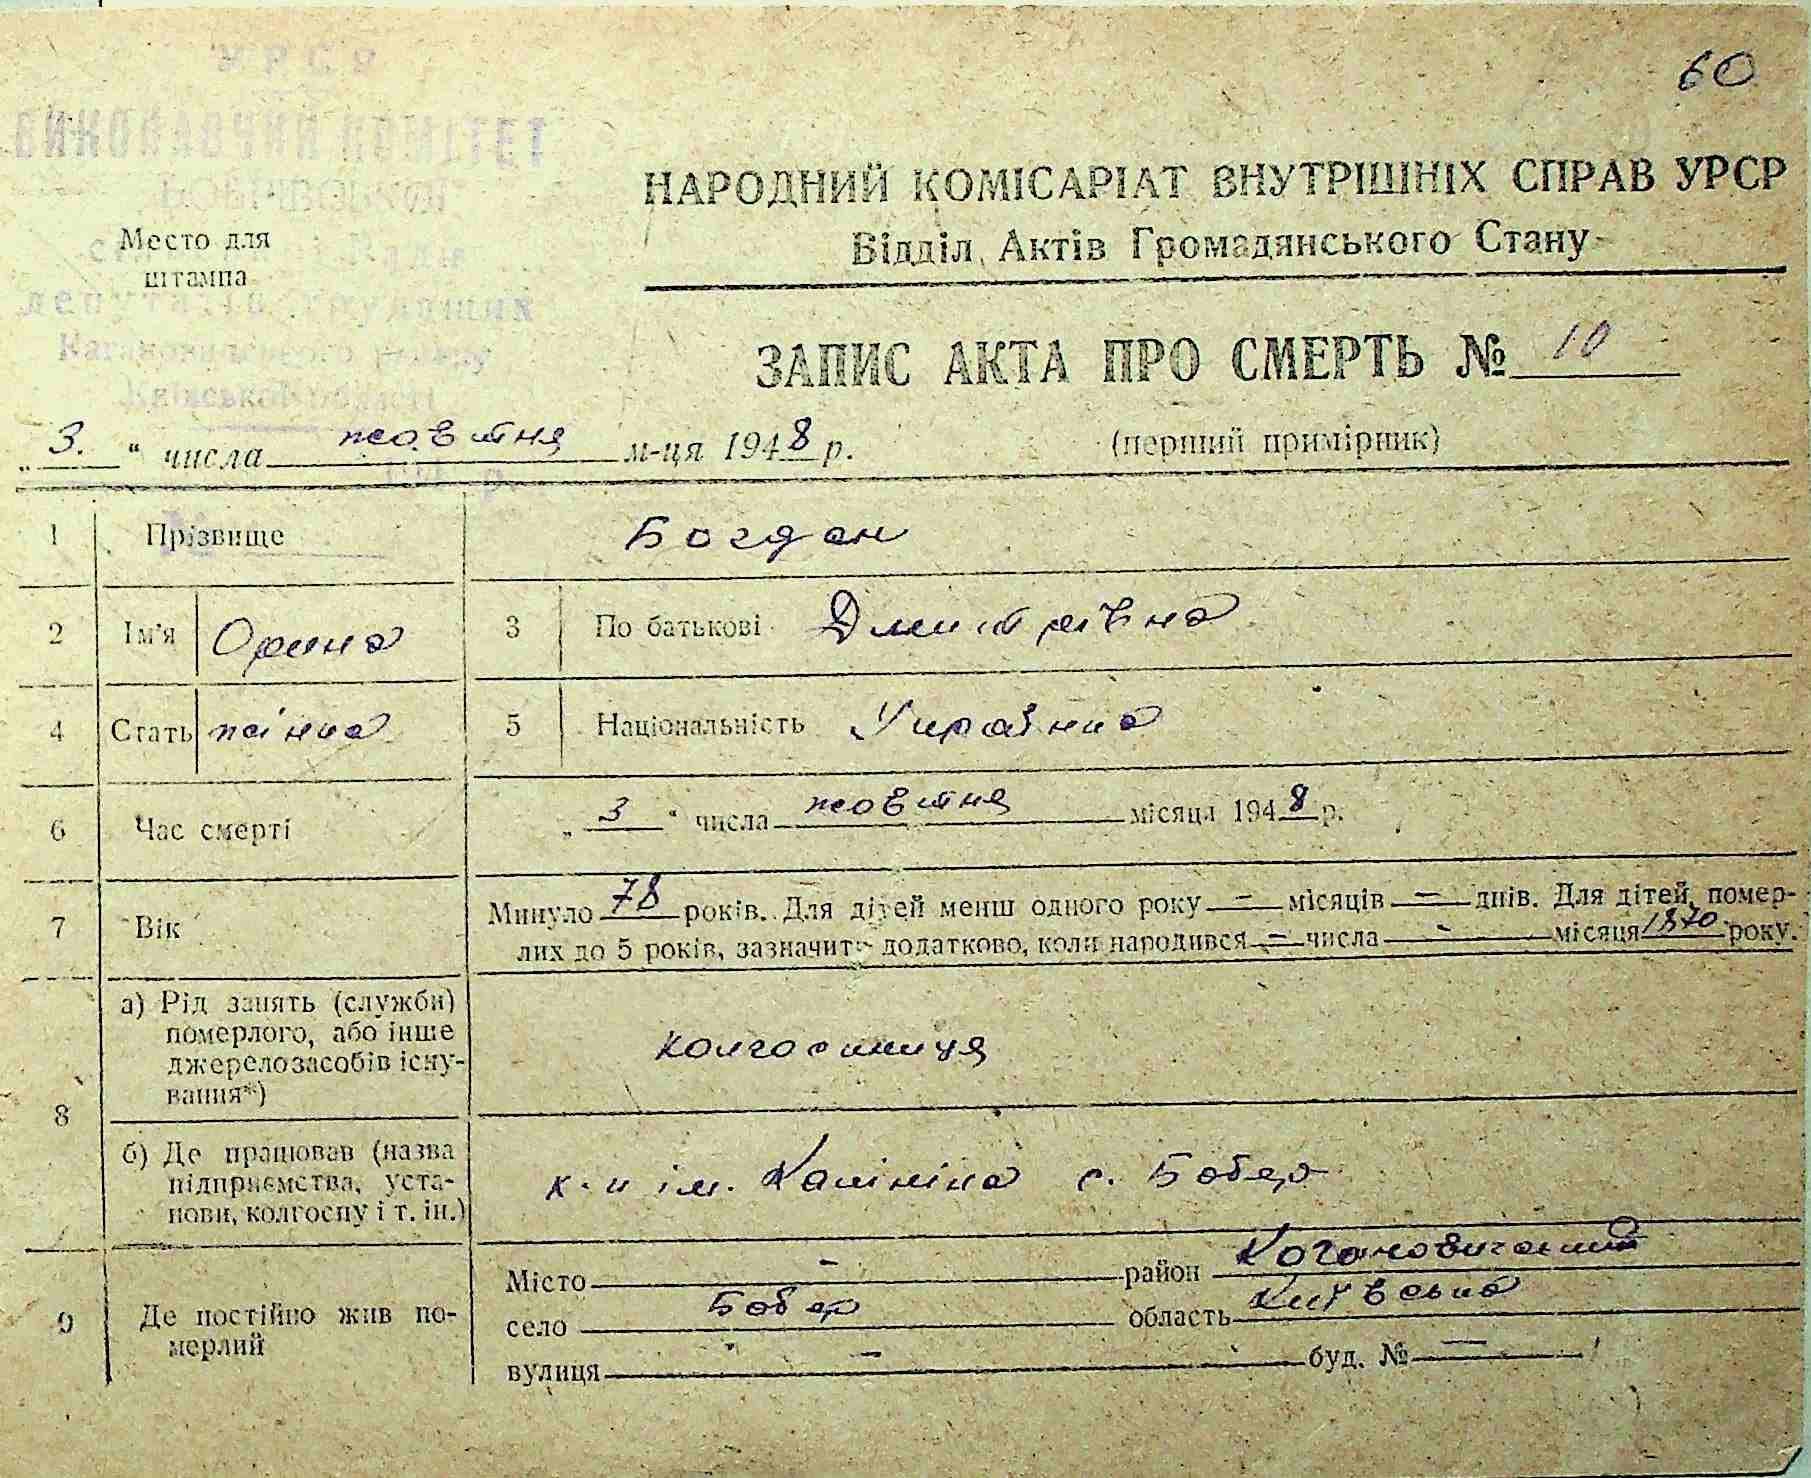 60
УРСР
ВИКОНАВЧИЙ КОМІТЕТ
Место для
штампа
депутатів трудящих
Кагановичського району
Київської області
НАРОДНИЙ КОМІСАРІАТ ВНУТРІШНІХ СПРАВ УРСР
Відділ Актів Громадянського Стану
ЗАПИС АКТА ПРО СМЕРТЬ № 10
„3.“ числа жовтня м-ця 1948 р. (перший примірник)
1 Прізвище Богдан
2 Ім'я Орина 3 По батькові Дмитрівна
4 Стать жінка 5 Національність Українка
6 Час смерті „3“ числа жовтня місяця 1948 р.
7 Вік Минуло 78 років. Для дітей менш одного року – місяців – днів. Для дітей, помер-
лих до 5 років, зазначить додатково, коли народився – числа - місяця 1870 року.
8 а) Рід занять (служби)
померлого, або інше
джерело засобів існу-
вання*) колгоспниця
б) Де працював (назва
підприємства, уста-
нови, колгоспу і т. ін.) к-п ім. Калініна с. Бобер
9 Де постійно жив по-
мерлий
Місто – район Кагановичський
село Бобер область Київська
вулиця – буд. № —